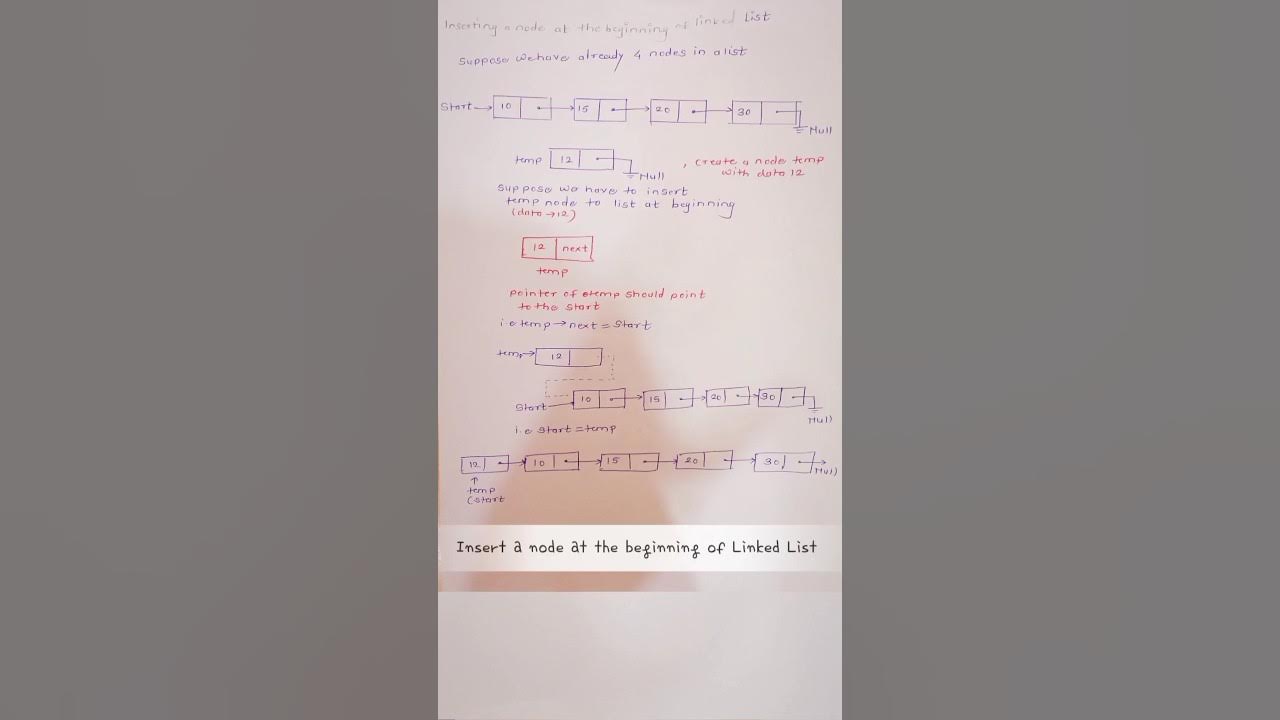 Inserting a node at the beginning of linked List
Suppose we have already 4 nodes in a list
Start 10 15 20 30
Null
temp 12
Null
, create a node temp
with data 12
Suppose we have to insert
temp node to list at beginning
(data → 12)
12 next
temp
pointer of temp should point
to the start
i.e temp → next = Start
temp → 12
Start 10 15 20 30
Null
i.e start = temp
12 10 15 20 30
Null
temp
(start
Insert a node at the beginning of Linked List